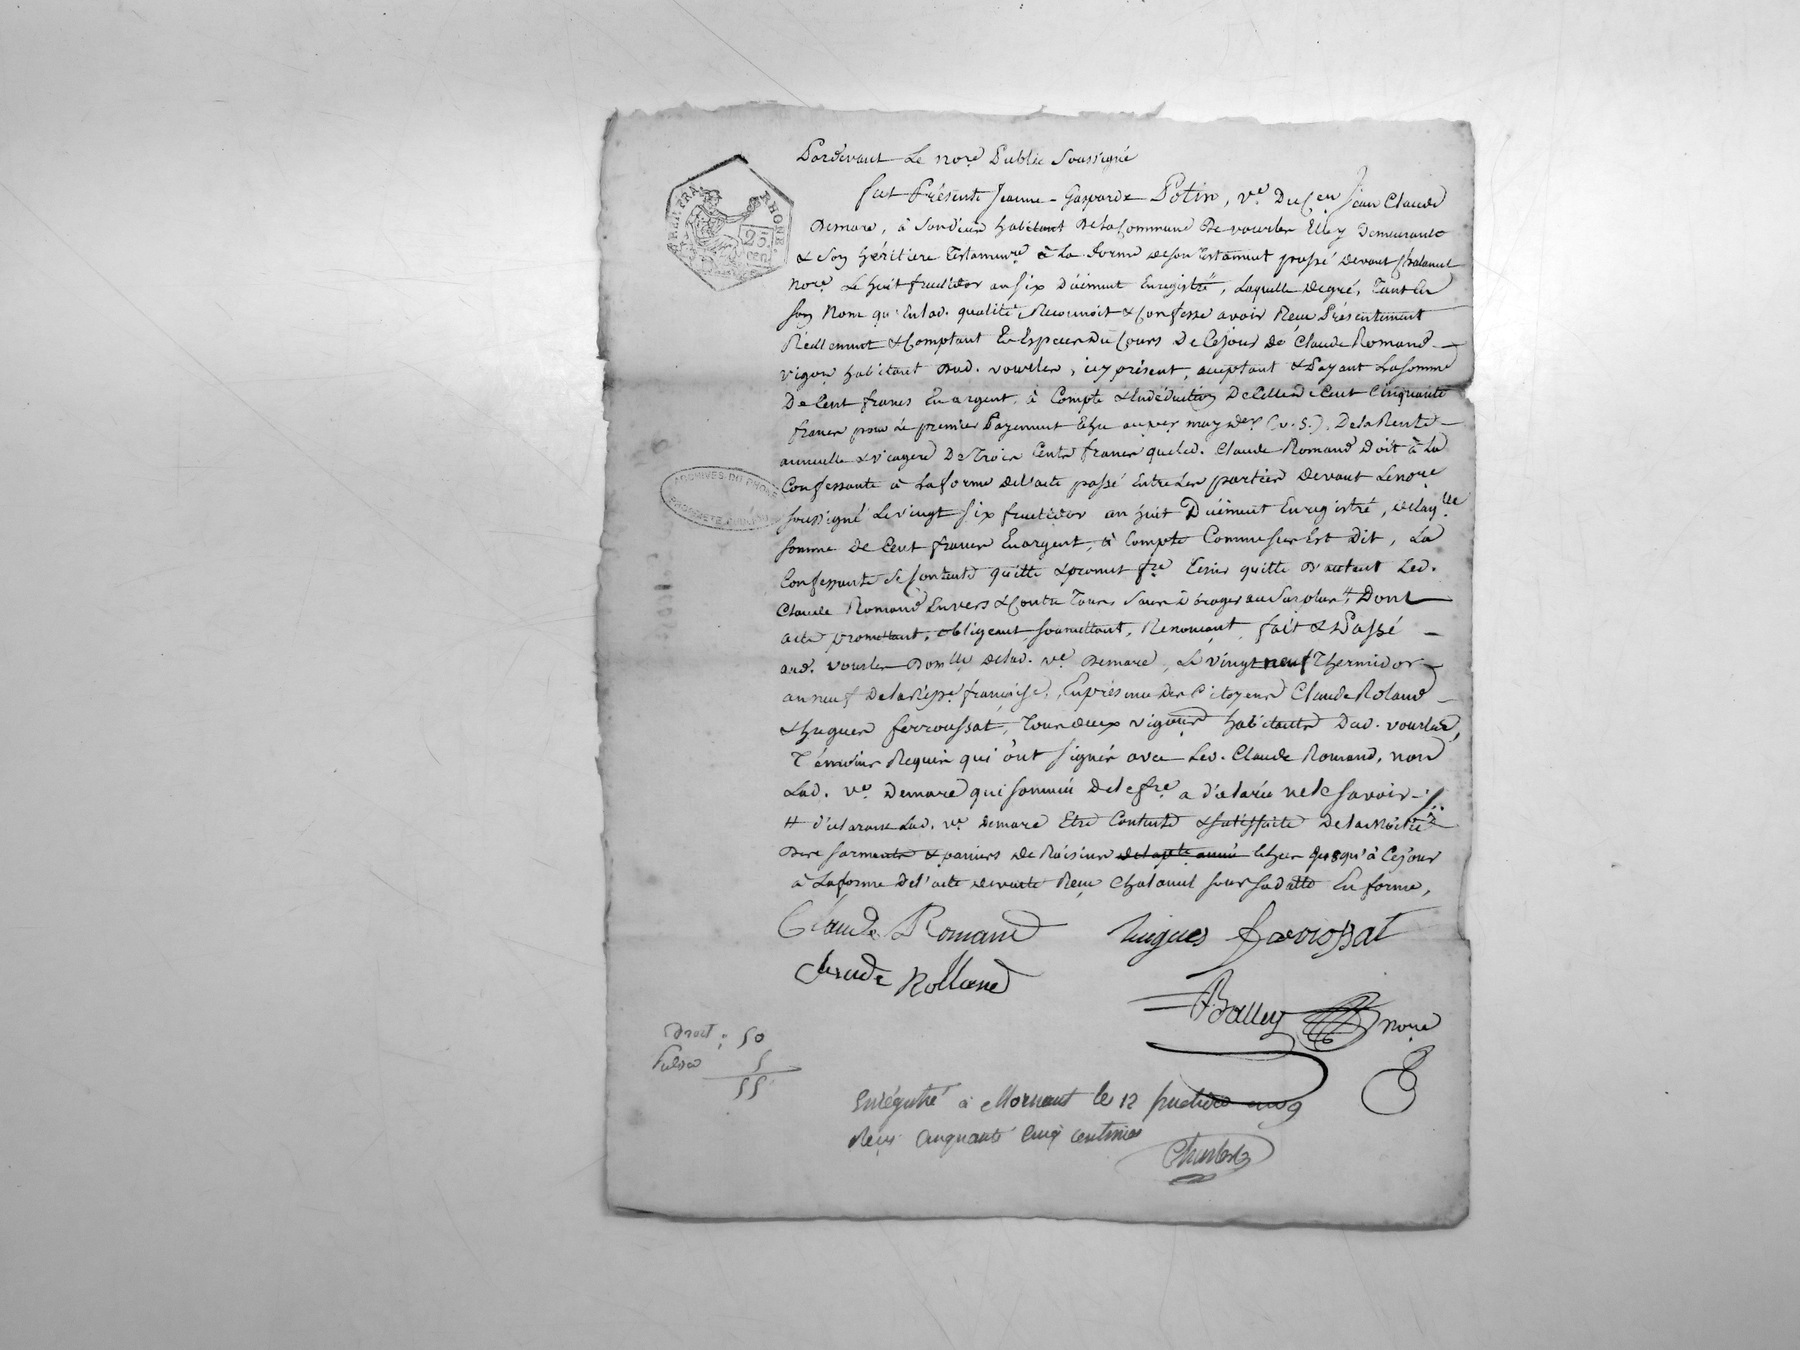 Pardevant Le nore Public Soussigné
fut Présente Jeanne-Gasparde Potin, Ve Du Cen Jean Claude
Demare, à Son vivant habitant De la Commune De vourles Elle y Demeurante
& Son héritiere Testamre à La forme de son testament passé devant Chalamel
nore Le huit fructidor an Six Dûement Enregistré, Laquelle de gré, Tant En
Son Nom qu'En lad. qualité Reconnoit & Confesse avoir Reçu Présentement
Réellement & Comptant En Especes Du Cours De Ce jour de Claude Romand
vigon habitant Dud. vourles, icy présent, acceptant & Payant La Somme
De Cent francs En argent, à Compte & En déduction De Celle de Cent Cinquante
francs pour Le premier Payement Echu au per may der (v.s.). De la Rente
annuelle & viagere De Trois Cents francs que led. Claude Romand Doit à La
Confessante à La forme de l'acte passé Entre Les parties devant Le nore
Soussigné Le vingt Six fructidor an huit Dûement Enregistré, de laqlle
Somme de Cent francs En argent, à Compte Comme Sus Est Dit, La
Confessante Se Contente quitte & promet fre Tenir quitte D'autant Led.
Claude Romand Envers & Contre Tous, Sans Déroger au Surplus # Dont
acte promettant, obligeant, Soumettant, Renonçant, fait & Passé
aud. vourles Domlle de lad. ve Demare, Le vingt neuf Thermidor
an neuf De la Répe françoise, En présence des Citoyens Claude Roland
& hugues ferroussat, Tous deux vigons habitants Dud. vourles,
Témoins Requis qui ont Signés avec Led. Claude Romand, non
Lad. ve Demare qui Sommée de le fre a déclarée ne le Savoir
# déclarant Lad. ve Demare Etre Contente & Satisfaite De la Moitié
Des Sarments & paniers de Raisins de lapte année Echus jusqu'à Ce jour
à La forme De l'acte devant Reçu Chalamel Sous Sa datte En forme,
Claude Romand hugues farrossat
Claude Rolland
Balley nore
Droit : 50
Subv.on 5
55
Enregistré à Mornant le 12 fructidor an 9
Reçu Cinquante Cinq Centimes
REP. FRA. RHONE
25 cen
ARCHIVES DU RHONE